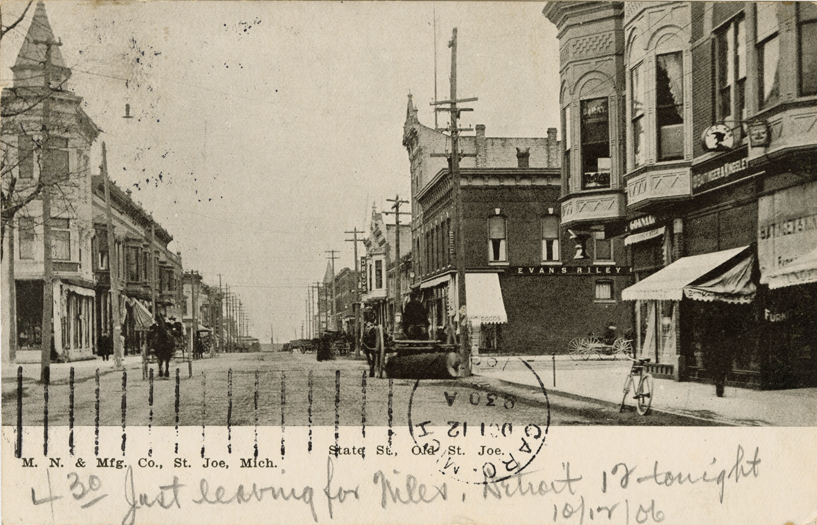 EVANS RILEY
State St., Old St. Joe.
M. N. & Mfg. Co., St. Joe, Mich.
CARO. MICH
OCT 12
930 A
430 Just leaving for Niles, Detroit 12 tonight
10/12/06